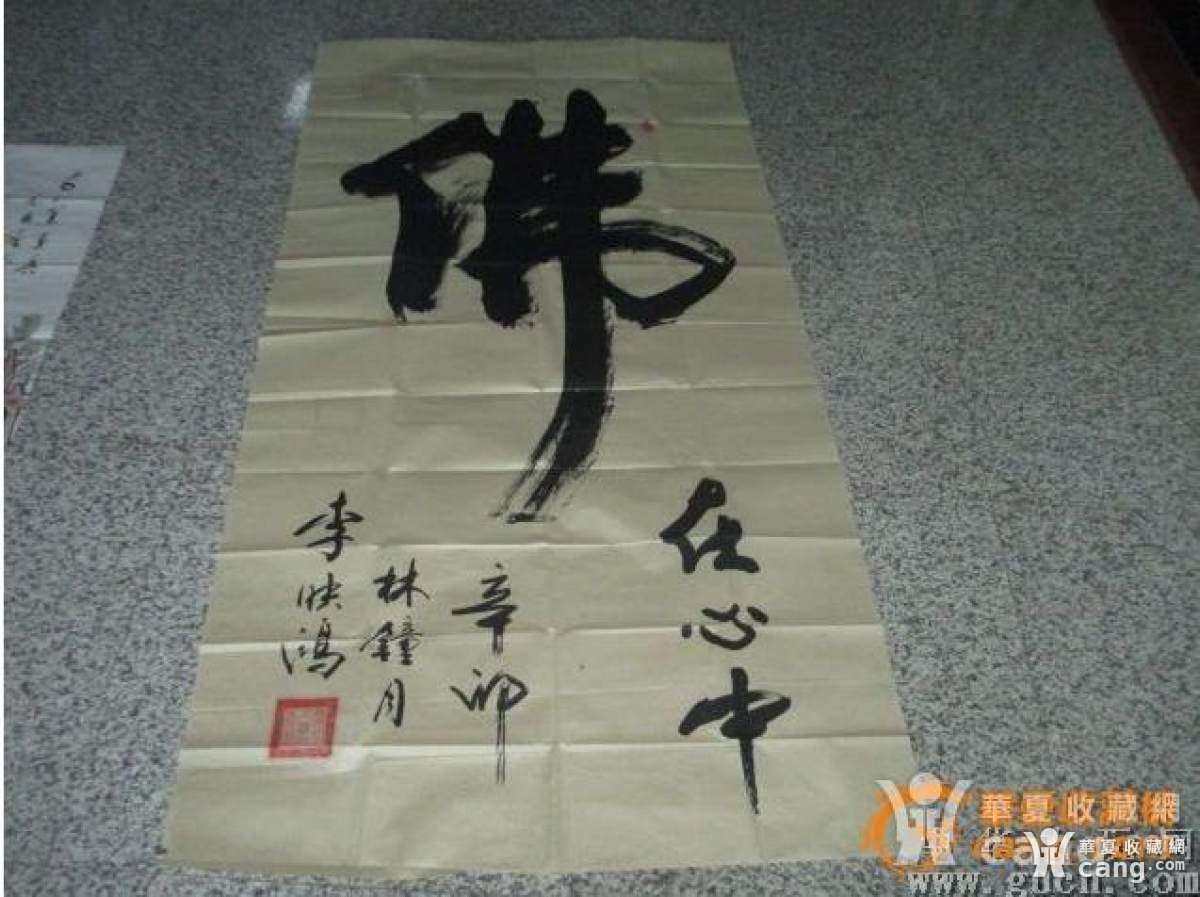 佛
在心中
辛卯
林鐘月
李映鴻
華夏收藏網
華夏收藏網
cang.com
www.gucn.com